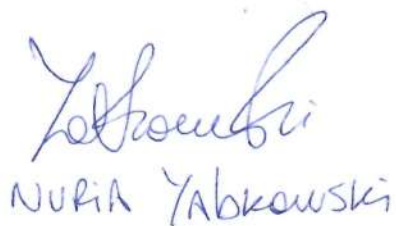 Yabkowski
NURIA YAbKOWSKi